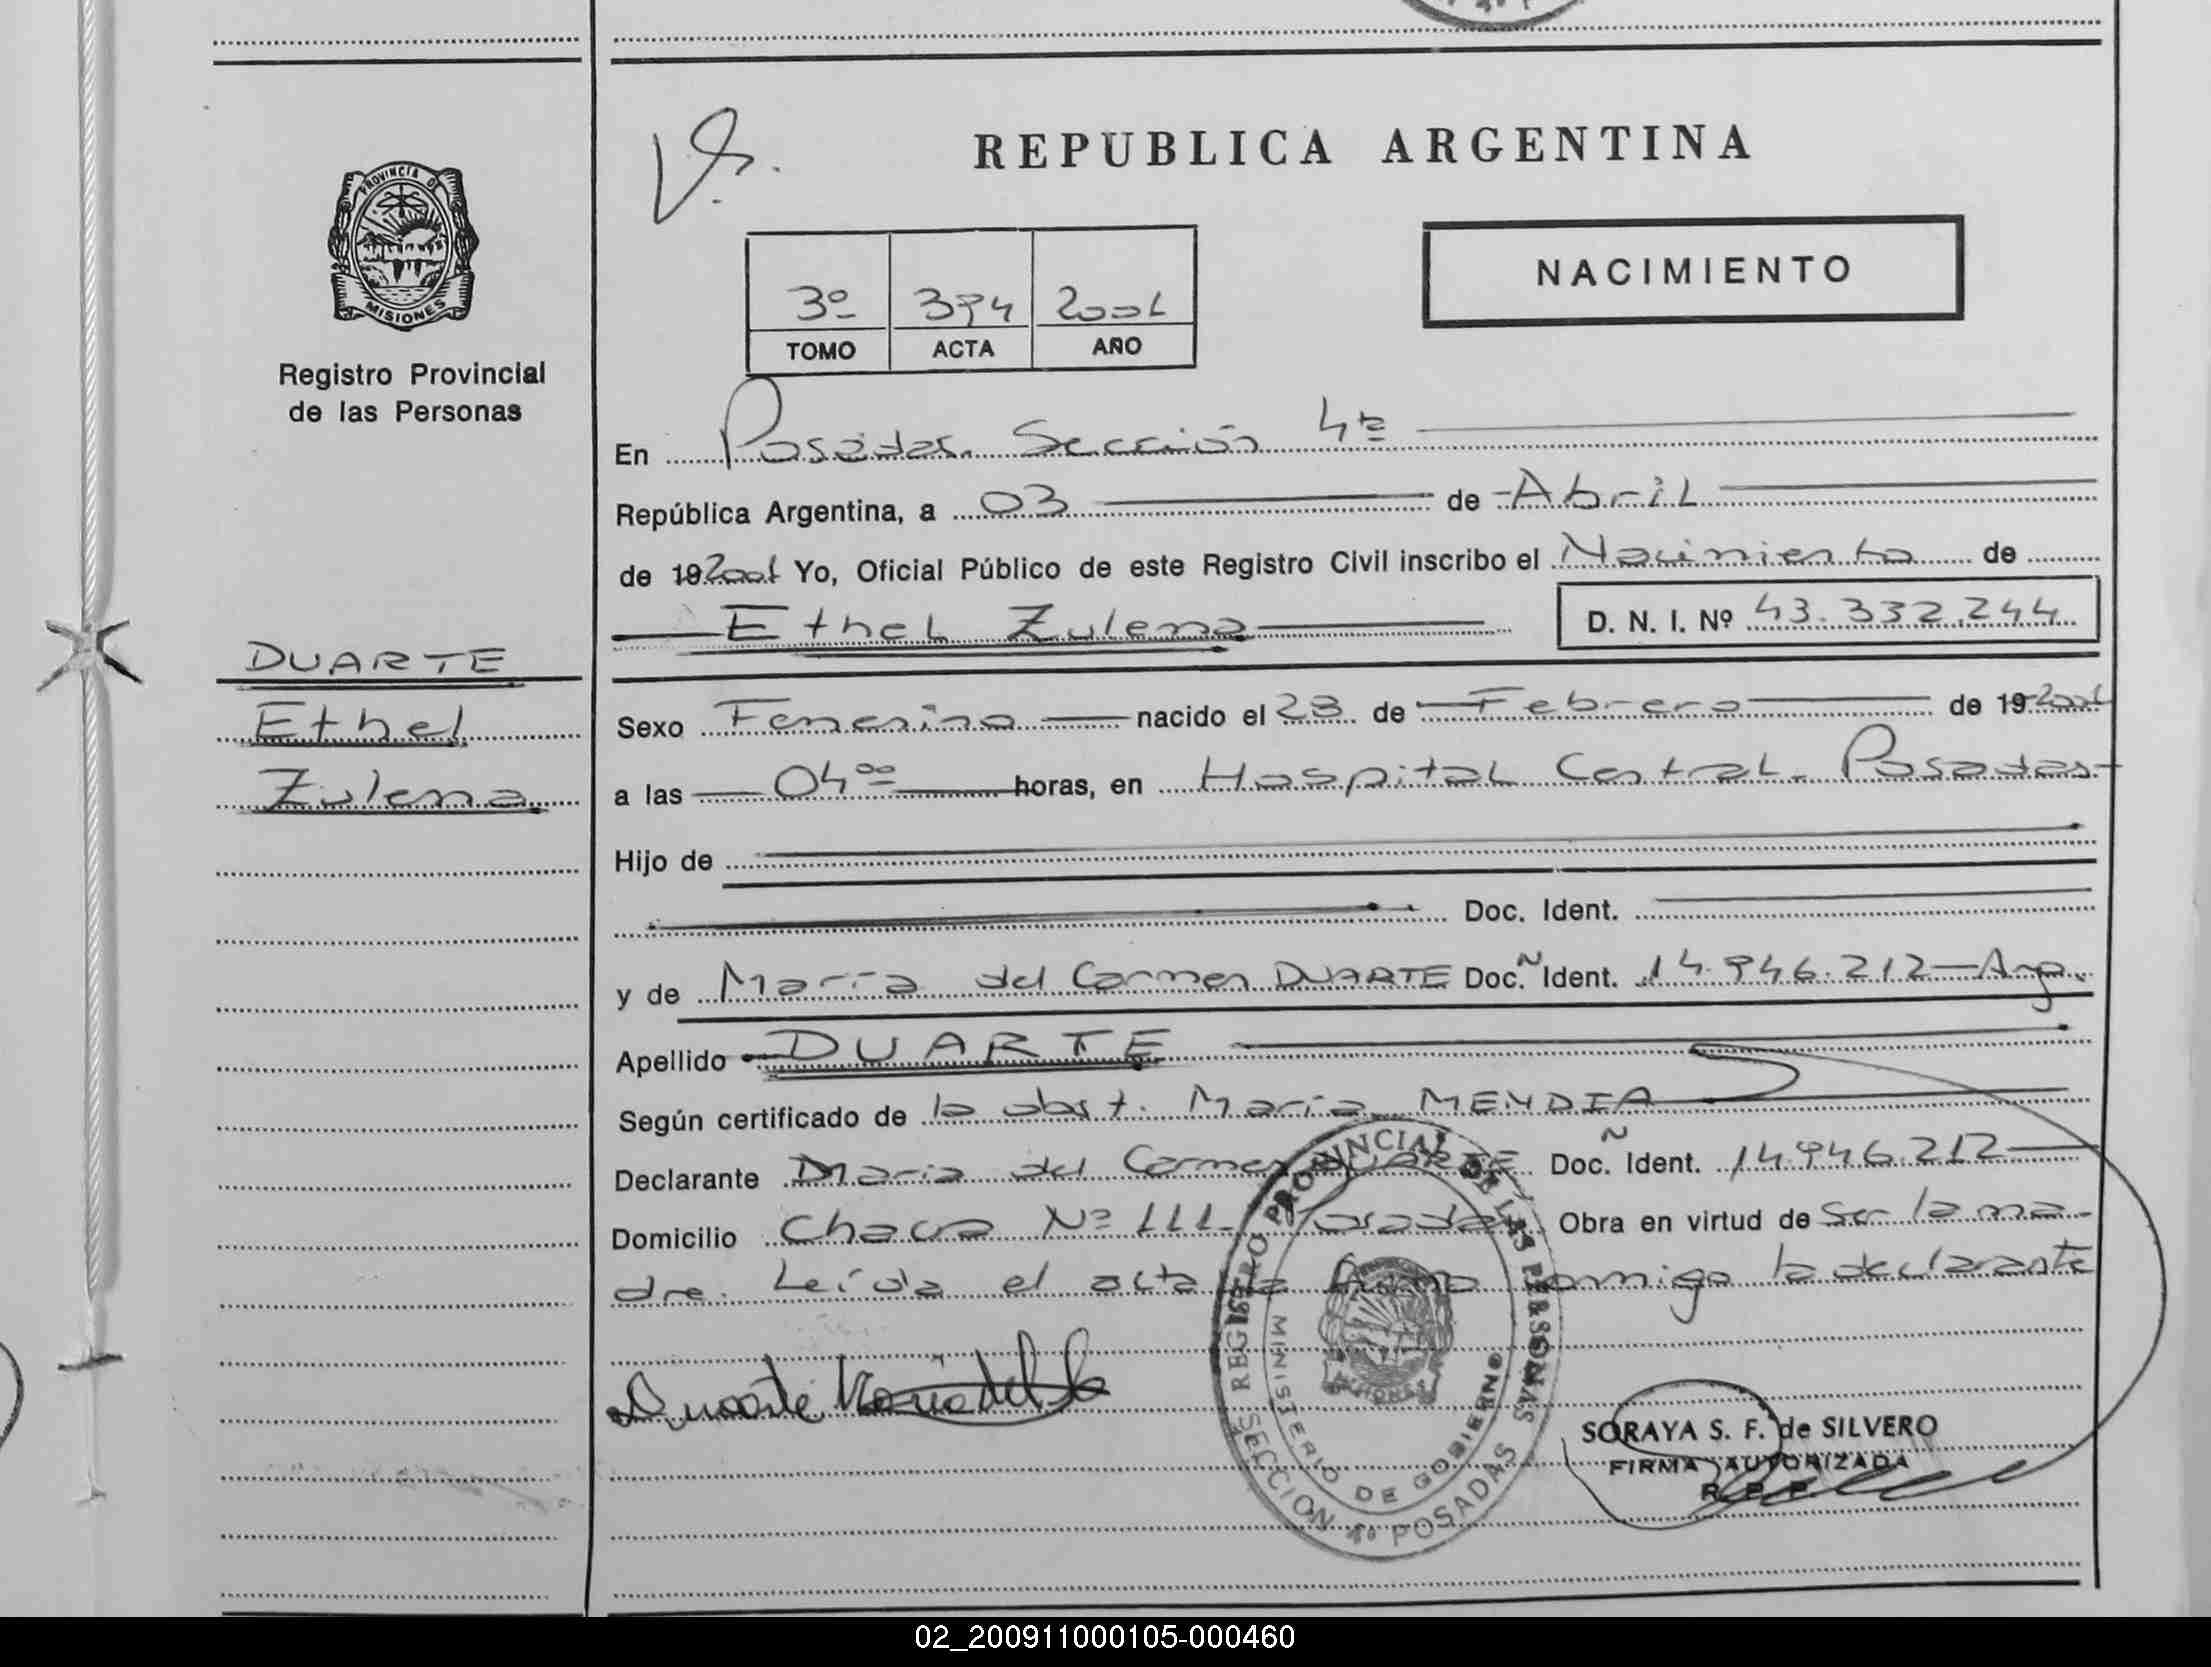 REPUBLICA ARGENTINA
NACIMIENTO
PROVINCIA DE
MISIONES
Registro Provincial
de las Personas
3º 394 2001
TOMO ACTA AÑO
En Posadas. Sección 4ª
República Argentina, a 03 de Abril
de 19 2001 Yo, Oficial Público de este Registro Civil inscribo el Nacimiento de
Ethel Zulema D. N. I. Nº 43.332.244
DUARTE
Ethel
Zulema
Sexo Femenino nacido el 23 de Febrero de 19 2001
a las 04⁰⁰ horas, en Hospital Central. Posadas
Hijo de
Doc. Ident.
y de María del Carmen DUARTE Doc. Ñ Ident. 14.946.212 - Arg.
Apellido DUARTE
Según certificado de la obst. María MENDIA
Declarante María del Carmen DUARTE Doc. Ñ Ident. 14.946.212
Domicilio Chaco Nº 111. Posadas. Obra en virtud de Ser la ma-
dre. Leída el acta la firma conmigo la declarante
Duarte María del C
REGISTRO PROVINCIAL DE LAS PERSONAS
MINISTERIO DE GOBIERNO
MISIONES
SECCION 4ª POSADAS
SORAYA S. F. de SILVERO
FIRMA AUTORIZADA
R. P. P.
02_200911000105-000460